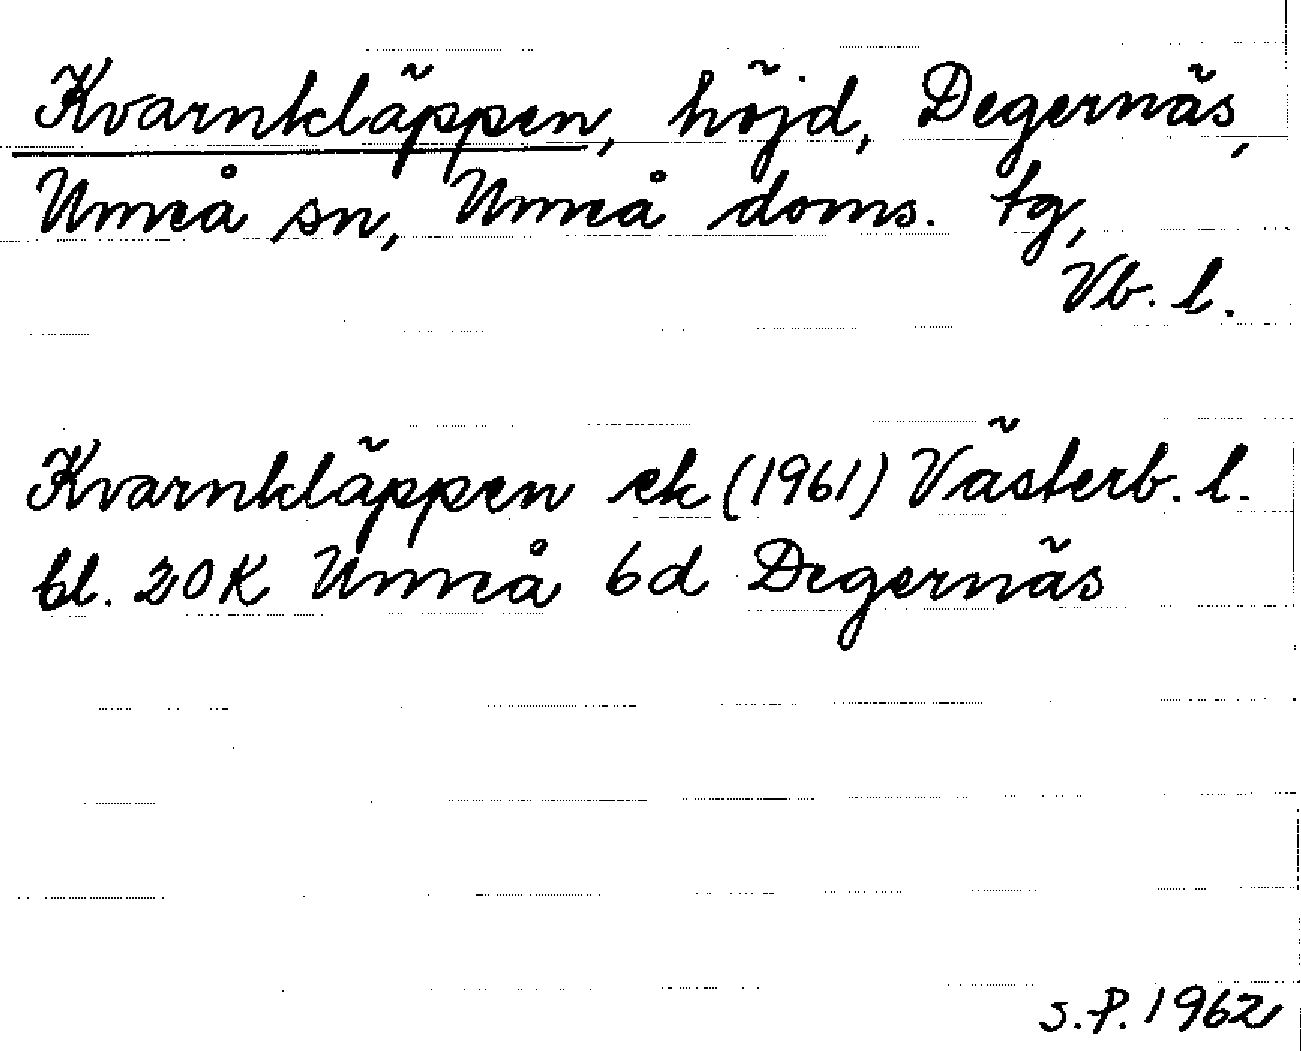 Kvarnkläppen, höjd, Degernäs,
Umeå sn, Umeå doms. tg,
Vb. l.
Kvarnkläppen ek (1961) Västerb. l.
bl. 20K Umeå 6d Degernäs
S.P. 1962